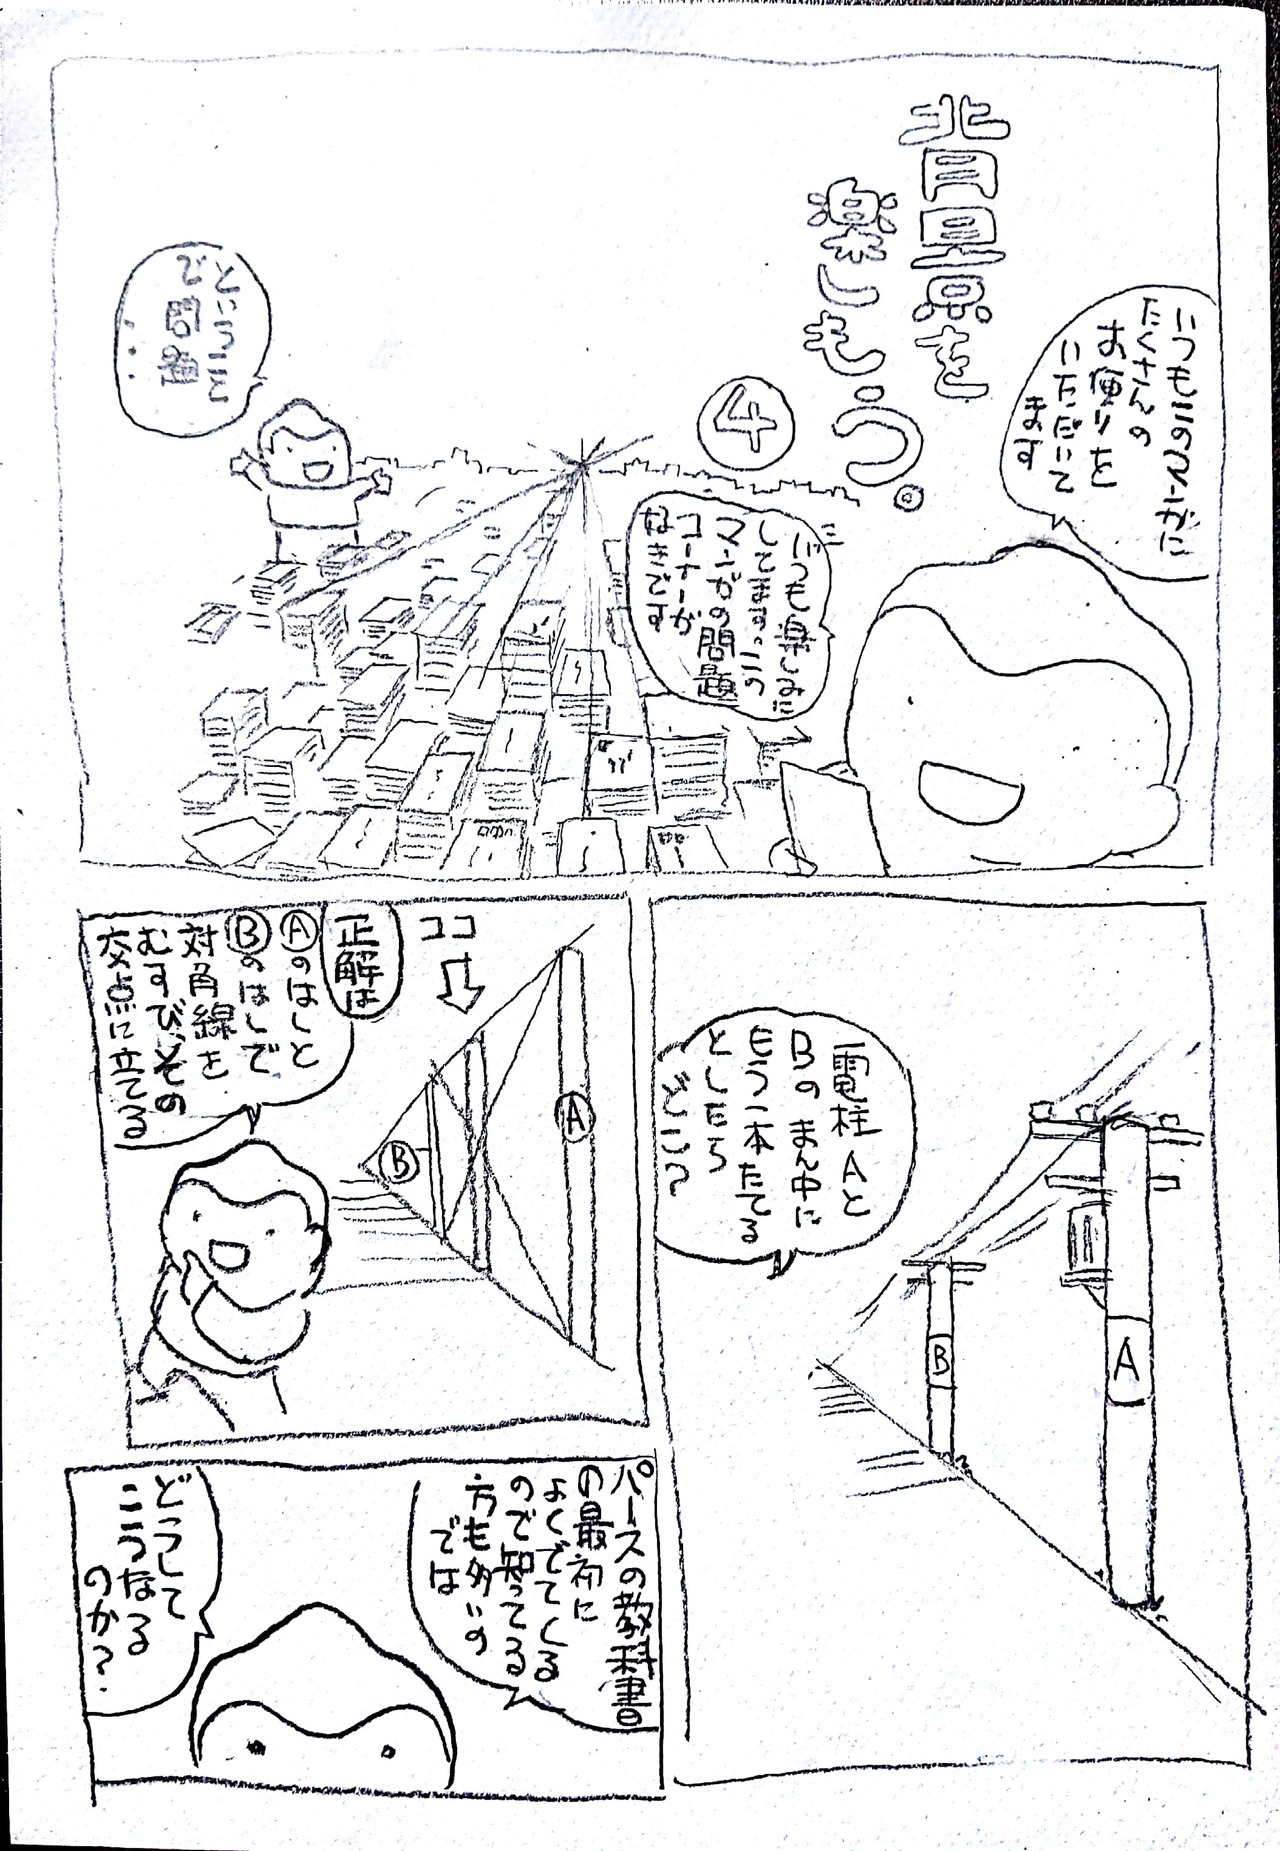 背景を
楽しもう。
④
いつもこのマンガに
たくさんの
お便りを
いただいて
ます
いつも楽しみに
してます。この
マンガの問題
コーナーが
好きです
ということ
で問題
・・・
電柱Aと
Bのまん中に
もう一本たてる
としたら
どこ?
A
B
ココ
正解は
Ⓐのはしと
Ⓑのはしで
対角線を
むすび、その
交点に立てる
Ⓐ
Ⓑ
パースの教科書
の最初に
よくでてくる
ので知ってる
方も多いの
では
どうして
こうなる
のか?